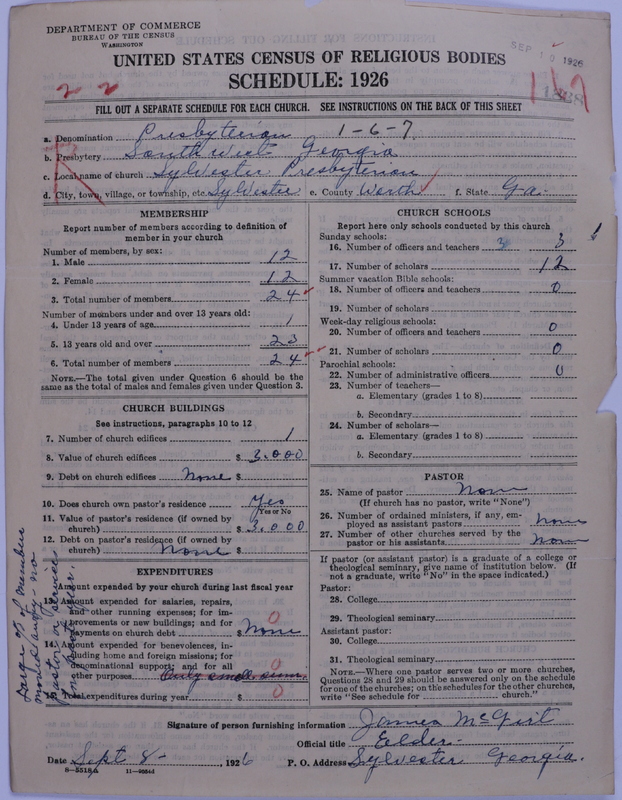 DEPARTMENT OF COMMERCE
BUREAU OF THE CENSUS
WASHINGTON
SEP 10 1926
UNITED STATES CENSUS OF RELIGIOUS BODIES
SCHEDULE: 1926
2 2
FILL OUT A SEPARATE SCHEDULE FOR EACH CHURCH. SEE INSTRUCTIONS ON THE BACK OF THIS SHEET
a. Denomination Presbyterian 1-6-7
b. Presbytery South West Georgia
c. Local name of church Sylvester Presbyterian
d. City, town, village, or township, etc. Sylvester e. County Worth f. State Ga.
MEMBERSHIP
Report number of members according to definition of
member in your church
Number of members, by sex:
1. Male 12
2. Female 12
3. Total number of members 24
Number of members under and over 13 years old:
4. Under 13 years of age 1
5. 13 years old and over 23
6. Total number of members 24
NOTE.—The total given under Question 6 should be the
same as the total of males and females given under Question 3.
CHURCH BUILDINGS
See instructions, paragraphs 10 to 12
7. Number of church edifices 1
8. Value of church edifices $ 3.000
9. Debt on church edifices None $
10. Does church own pastor's residence Yes
Yes or No
11. Value of pastor's residence (if owned by
church) $ 3.000
12. Debt on pastor's residence (if owned by
church) None $
EXPENDITURES
Amount expended by your church during last fiscal year
13. Amount expended for salaries, repairs,
and other running expenses; for im-
provements or new buildings; and for
payments on church debt $ None 0
14. Amount expended for benevolences, in-
cluding home and foreign missions; for
denominational support; and for all
other purposes Only small sum. 0
15. Total expenditures during year $ 0
CHURCH SCHOOLS
Report here only schools conducted by this church
Sunday schools:
16. Number of officers and teachers 3 3
17. Number of scholars 12
Summer vacation Bible schools:
18. Number of officers and teachers 0
19. Number of scholars
Week-day religious schools:
20. Number of officers and teachers 0
21. Number of scholars 0
Parochial schools:
22. Number of administrative officers 0
23. Number of teachers—
a. Elementary (grades 1 to 8)
b. Secondary
24. Number of scholars—
a. Elementary (grades 1 to 8)
b. Secondary
PASTOR
25. Name of pastor None
(If church has no pastor, write "None")
26. Number of ordained ministers, if any, em-
ployed as assistant pastors None
27. Number of other churches served by the
pastor or his assistants None
If pastor (or assistant pastor) is a graduate of a college or
theological seminary, give name of institution below. (If
not a graduate, write "No" in the space indicated.)
Pastor:
28. College
29. Theological seminary
Assistant pastor:
30. College
31. Theological seminary
NOTE.—Where one pastor serves two or more churches,
Questions 28 and 29 should be answered only on the schedule
for one of the churches; on the schedules for the other churches,
write "See schedule for church."
Signature of person furnishing information James McGirt
Official title Eelder
Date Sept 8- , 1926 P. O. Address Sylvester Georgia.
8-5518a